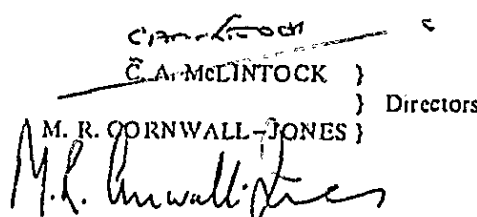 C. A. McLINTOCK }
} Directors
M. R. CORNWALL-JONES }
M.R. Cornwall-Jones